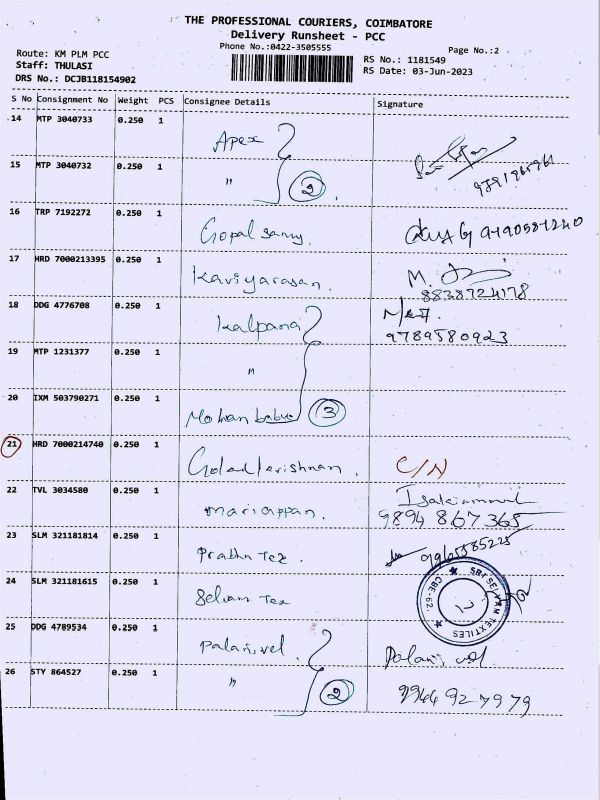 THE PROFESSIONAL COURIERS, COIMBATORE
Delivery Runsheet - PCC
Phone No.:0422-3505555
Page No.:2
Route: KM PLM PCC
Staff: THULASI
DRS No.: DCJB118154902
RS No.: 1181549
RS Date: 03-Jun-2023
S No Consignment No Weight PCS Consignee Details Signature
14 MTP 3040733 0.250 1 Apex
15 MTP 3040732 0.250 1 " 2
16 TRP 7192272 0.250 1 Gopal Samy.
17 HRD 7000213395 0.250 1 Kaviyarasan. M.
8838724178
18 DDG 4776708 0.250 1 Kalpana
9789580923
19 MTP 1231377 0.250 1 "
20 IXM 503790271 0.250 1 Mohan babu 3
21 HRD 7000214740 0.250 1 C/N
22 TVL 3034580 0.250 1 Mariappan.
9894 867365
23 SLM 321181814 0.250 1 Prabhu Tex.
24 SLM 321181615 0.250 1 Selvam Tex
SRI SELVAM TEXTILES
CBE-62.
25 DDG 4789534 0.250 1 Palanivel. Palanivel.
26 STY 864527 0.250 1 " 2